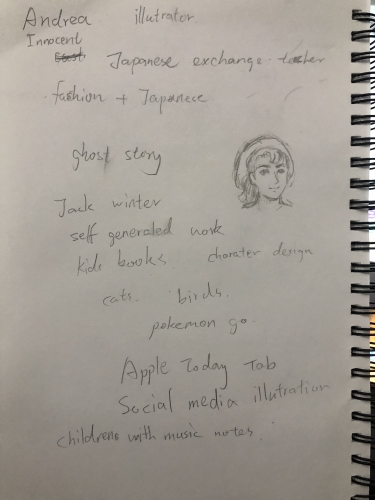 Andrea illutrator.
Innocent
Japanese exchange
fashion + Japanece
ghost story
Jack winter
self generated work
kids books charater design
cats. birds.
pokemon go.
Apple Today Tab
Social media illutration
childrens with music notes.